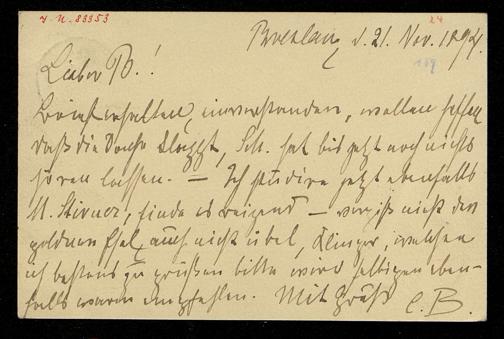 J. N. 83353
24
Breslau, d. 21. Nov. 1894.
189
Lieber B.!
Brief erhalten, einverstanden, wollen hoffen
daß die Sache klappt, Sch. hat bis jetzt noch nichts
hören lassen. — Ich studire jetzt ebenfalls
M. Stirner, finde es reizend — vergiß nicht den
goldnen Esel, auch nicht übel, Klinger, welchen
ich bestens zu grüßen bitte wird selbigen eben-
falls warm empfehlen. Mit Gruß
C. B.